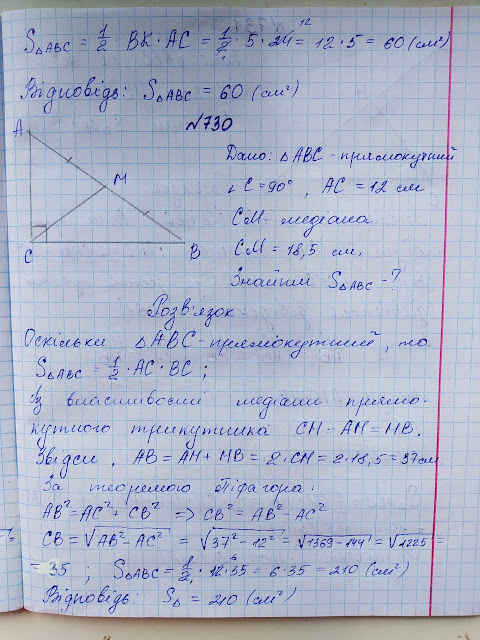 S△ABC = 1/2 · BK · AC = 1/2 · 5 · 24 12 = 12 · 5 = 60 (см²)
Відповідь: S△ABC = 60 (см²)
№730
A
M
C
B
Дано: △ABC - прямокутний
∠C = 90°, AC = 12 см
CM - медіана
CM = 18,5 см.
Знайти S△ABC - ?
Розв'язок
Оскільки △ABC - прямокутний, то
S△ABC = 1/2 · AC · BC ;
Із властивості медіани прямо-
кутного трикутника CM = AM = MB.
Звідси, AB = AM + MB = 2 · CM = 2 · 18,5 = 37 см
За теоремою Піфагора:
AB² = AC² + CB² => CB² = AB² - AC²
CB = √AB² - AC² = √37² - 12² = √1369 - 144 = √1225 =
= 35 ; S△ABC = 1/2 · 12 6 · 35 = 6 · 35 = 210 (см²)
Відповідь: S△ = 210 (см²)